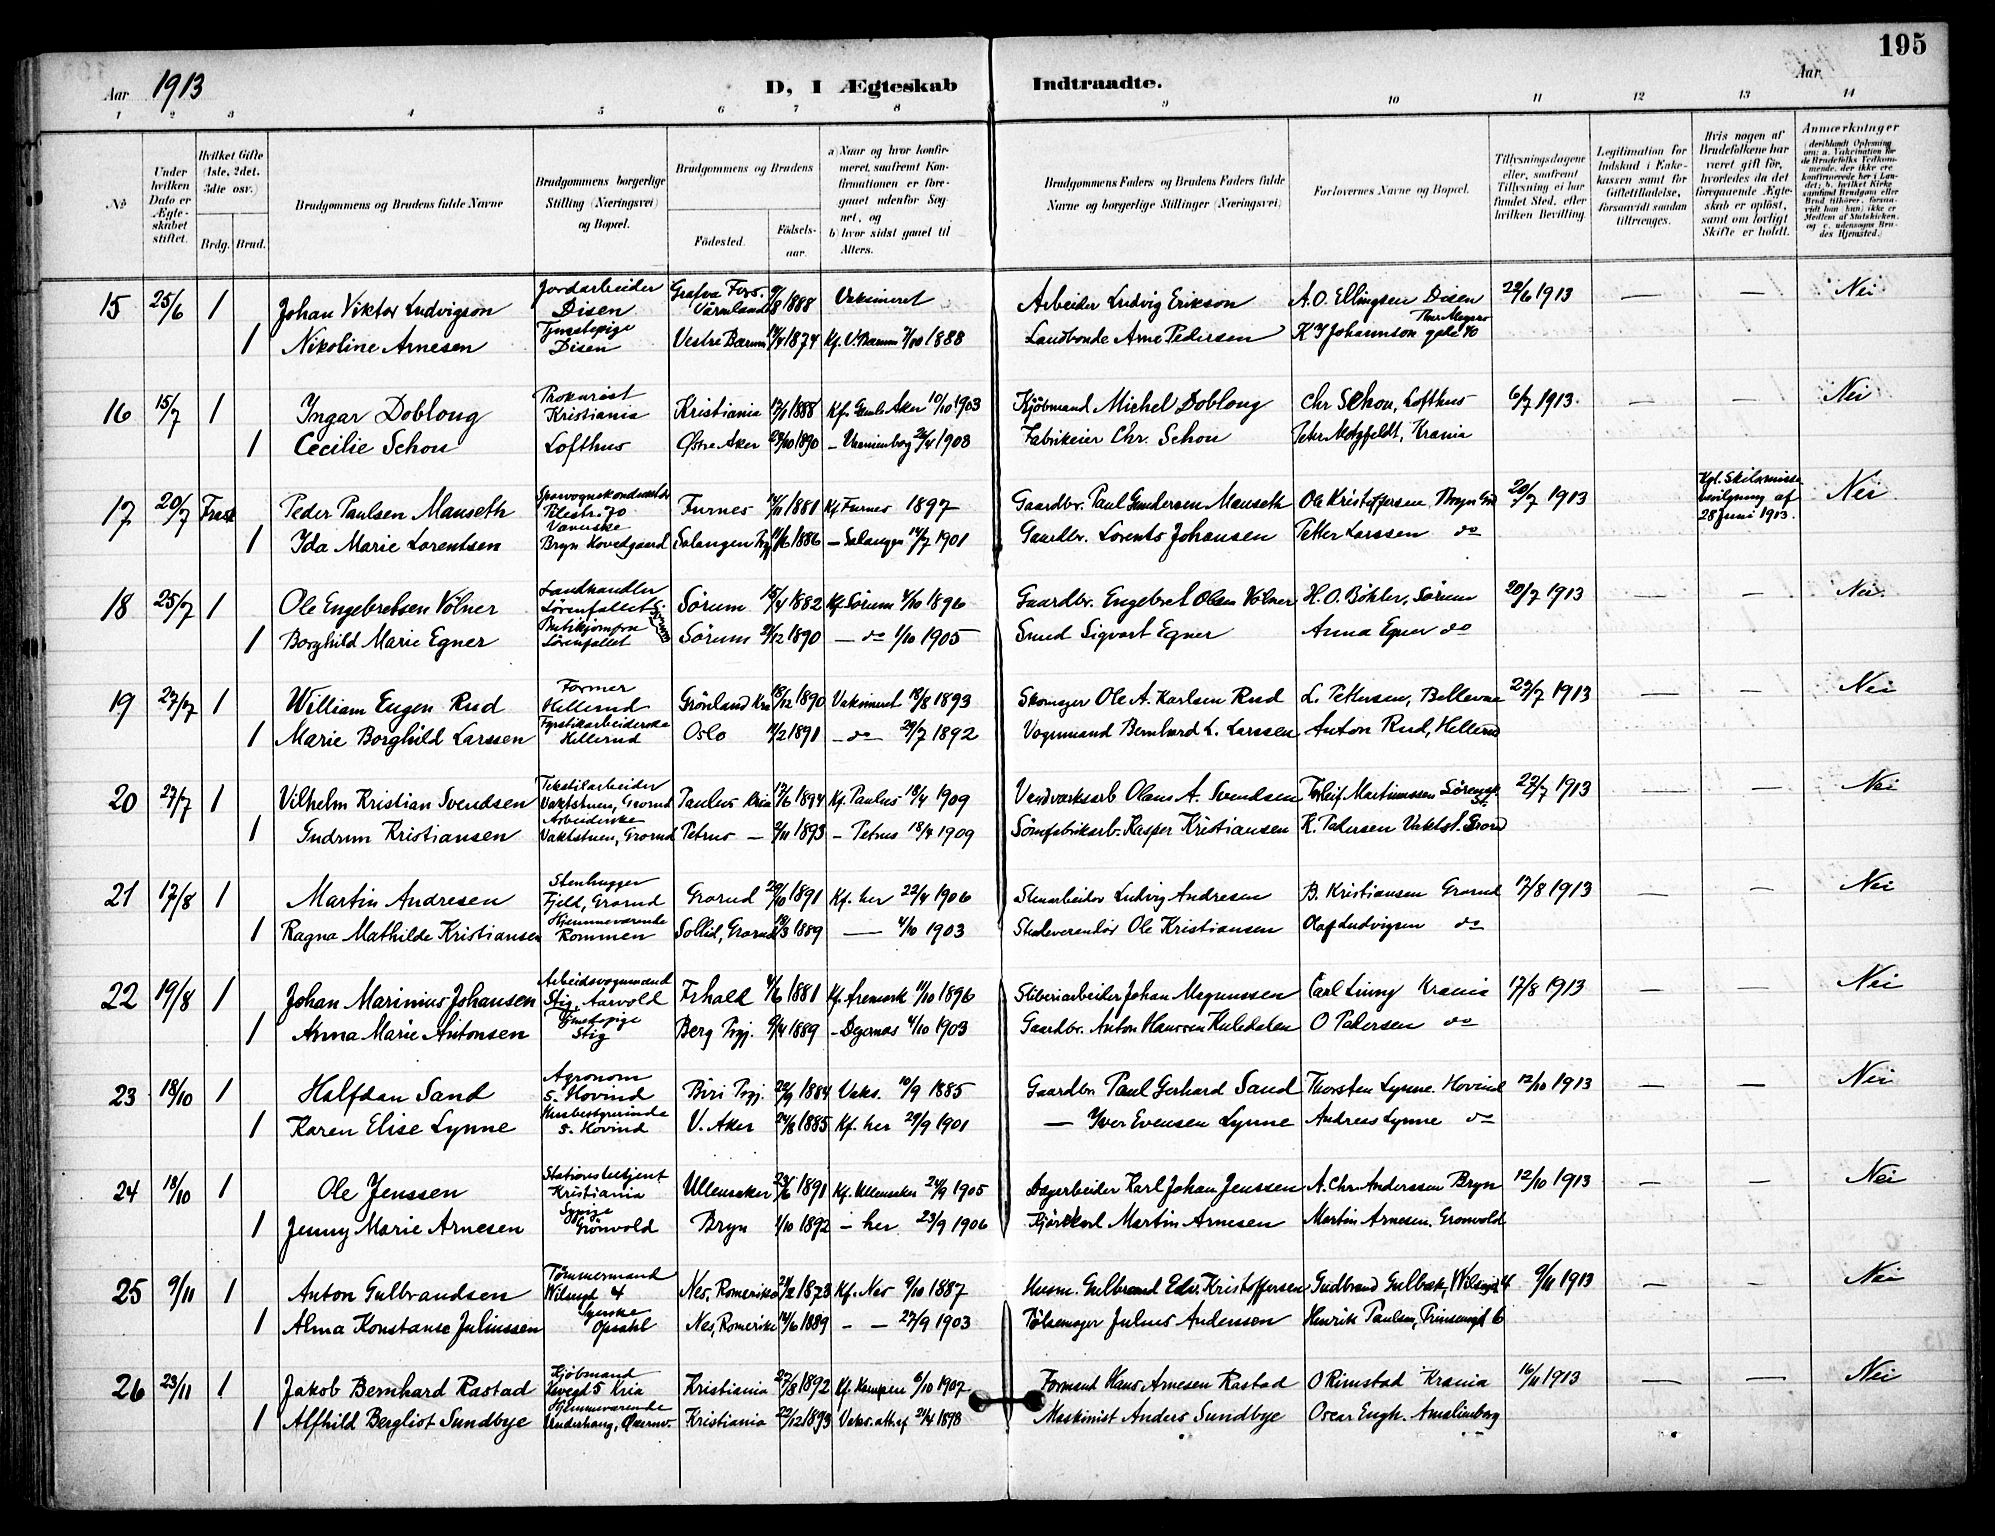 195
Aar 1913
D, I Ægteskab Indtraadte.
Aar
1 2 3 4 5 6 7 8 9 10 11 12 13 14
No
Under hvilken Dato er Ægteskabet stiftet.
Hvilket Gifte (1ste, 2det, 3die osv.)
Brdg. Brud.
Brudgommens og Brudens fulde Navne
Brudgommens borgerlige Stilling (Næringsvei) og Bopæl.
Brudgommens og Brudens
Fødested. Fødselsaar.
a) Naar og hvor konfirmeret, saafremt Konfirmationen er foregaaet udenfor Sognet, og
b) hvor sidst gaaet til Alters.
Brudgommens Faders og Brudens Faders fulde Navne og borgerlige Stillinger (Næringsvei)
Forlovernes Navne og Bopæl.
Tillysningsdagene eller, saafremt Tillysning ei har fundet Sted, efter hvilken Bevilling.
Legitimation for Indskud i Enkekassen samt for Giftetilladelse, forsaavidt saadan tiltrænges.
Hvis nogen af Brudefolkene har været gift før, hvorledes da det foregaaende Ægteskab er opløst, samt om lovligt Skifte er holdt.
Anmærkninger
15 25/6 1 Johan Viktor Ludvigson Jordarbeider Disen 1888 Vaksineret Arbeider Ludvig Erikson A.O. Ellingsen Disen 22/6 1913 — — Nei
1 Nikoline Arnesen Tjenestepige Disen Vestre Bærum 1874 Kf. V. Bærum 1888 Landbonde Arne Pedersen K Johannson
16 15/7 1 Ingar Doblong Prokurist Kristiania Kristiania 1888 Kf. Aker 1903 Kjøbmand Michel Doblong Chr Schou, Lofthus 6/7 1913 — — Nei
1 Cecilie Schou Lofthus Østre Aker 1890 1903 Fabrikeier Chr. Schou Peter Motzfeldt, Krania
17 20/7 Frask Peder Paulsen Mauseth Furnes 1881 Kf Furnes 1897 Gaardbr. Paul Gundersen Mauseth Ole Kristoffersen 20/7 1913 — Kgl. Skilsmisse bevilgning af 28 Juni 1913. Nei
1 Ida Marie Lorentsen Bryn Hovedgaard Salangen 1886 — Salangen 1901 Gaardbr. Lorents Johansen Petter Larssen do
18 25/7 1 Ole Engebretsen Vølner Landhandler Sørum 15/4 1882 Kf Sørum 1896 Gaardbr. Engebret Olsen Vølner H.O. Böhler, Sørum 20/7 1913 — — Nei
1 Borghild Marie Egner Sørum 1890 — do 1/10 1905 Smed Sigvart Egner Anna Egner do
19 27/7 1 William Eugen Rud Former Hellerud Grønland Kra 18/12 1890 Vaksineret 18/8 1893 Skomager Ole A. Karlsen Rud L. Pettersen, Bellevue 27/7 1913 — — Nei
1 Marie Borghild Larssen Fyrstikarbeiderske Hellerud Oslo 1891 — do — 29/7 1892 Vognmand Bernhard L. Larssen Anton Rud, Hellerud
20 27/7 1 Vilhelm Kristian Svendsen Tekstilarbeider Vaktstuen, Grorud Paulus Kria 1894 Kf. Paulus 18/4 1909 Olaus A. Svendsen Martinussen 27/7 1913 — — Nei
1 Gudrun Kristiansen Arbeiderske Vaktstuen, Grorud Petrus — 1893 — Petrus 18/4 1909 Sömfabrikarb. Kasper Kristiansen K. Pedersen
21 17/8 1 Martin Andresen Stenhugger Fjeld, Grorud Grorud 1891 Kf. her 22/4 1906 Stenarbeider Ludvig Andresen B. Kristiansen Grorud 17/8 1913 — — Nei
1 Ragna Mathilde Kristiansen Hjemmeværende Rommen Sollid, Grorud 1889 — 4/10 1903 Stenleverandør Ole Kristiansen Olaf Ludvigsen do
22 19/8 1 Johan Marinius Johansen Arbeidsvognmand Stig, Aarvold 1881 Kf. Aremark 11/10 1896 Johan Magnussen Carl Krania 17/8 1913 — — Nei
1 Anna Marie Antonsen Tjenestepige Stig Berg Prgj. 1889 — Degernes 4/10 1903 Gaardbr. Anton Hanssen O Pedersen do
23 18/10 1 Halfdan Sand Agronom S. Hovind Biri Prgj. 22/9 1884 Vaks. 10/9 1885 Gaardbr. Paul Gerhard Sand Thorsten Lynne. Hovind 12/10 1913 — — Nei
1 Karen Elise Lynne Husbestyrerinde S. Hovind V. Aker 24/8 1885 Kf. her 29/9 1901 — Yver Evensen Lynne Andreas Lynne do
24 18/10 1 Ole Jenssen Stationsbetjent Kristiania Ullensaker 1891 Kf. Ullensaker 24/9 1905 Dagarbeider Karl Johan Jenssen A. Chr. Anderssen Bryn 12/10 1913 — — Nei
1 Jenny Marie Arnesen Sypige Grönvold Bryn 1/10 1892 — her 23/9 1906 Kjørekarl Martin Arnesen Martin Arnesen. Gronvold
25 9/11 1 Anton Gulbrandsen Tømmermand 4 Nes, Romerike 1873 Kf. Nes 9/10 1887 Husm. Gulbrand Edv. Kristoffersen Gudbrand 9/11 1913 — — Nei
1 Alma Konstanse Juliussen Syerske Opsahl Nes, Romerike 14/6 1889 — — 27/9 1903 Pölsemager Julius Andersson Henrik Paulsen, Prinsensgt 6
26 23/11 1 Jakob Bernhard Rastad Kjøbmand Kria Kristiania 27/8 1892 Kf. Kampen 6/10 1907 Formand Hans Arnesen Rastad O Rimstad Krania 16/11 1913 — — Nei
1 Alfhild Bergliot Sundbye Hjemmeværende Kristiania 22/12 1893 Vaks. attest Maskinist Anders Sundbye Oscar Engh.